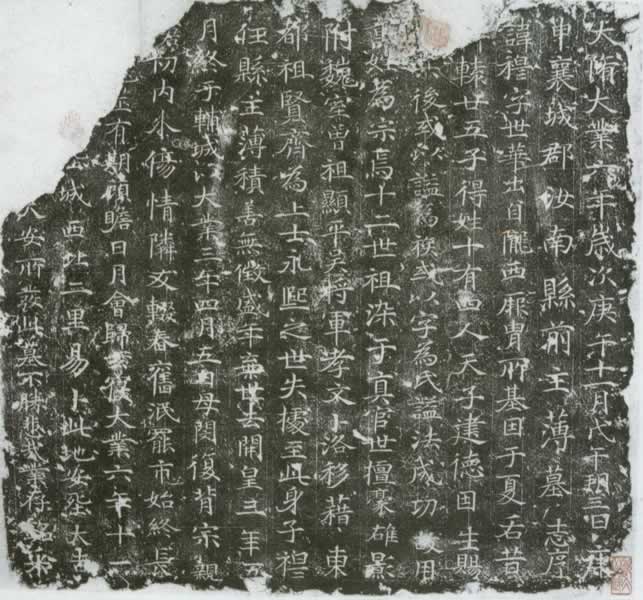 大隋大業六年歲次庚午十一月戊午朔三日庚
申襄城郡汝南縣前主薄墓志序
諱禮字世華出自隴西厥胄所基因于夏后昔
軒轅廿五子得姓十有四人天子建德因生賜
後或以謚為族或以字為民謚法成功 用
為宗焉十二世祖 于真官世擅豪雄影
附魏室曾祖顯平吳將軍孝文卜洛移藉東
都祖賢齊為上士永熙之世失據至此身子禮
任縣主薄積善無徵盛年棄世去開皇三年
月終于輔城以大業三年四月五日母閻復背宗親
切內外傷情隣友輟舂舊 罷市始終長
有期瞻日月會歸 大業六年十一
城西北二里易卜此地安 太古
安所 此墓不勝 業存